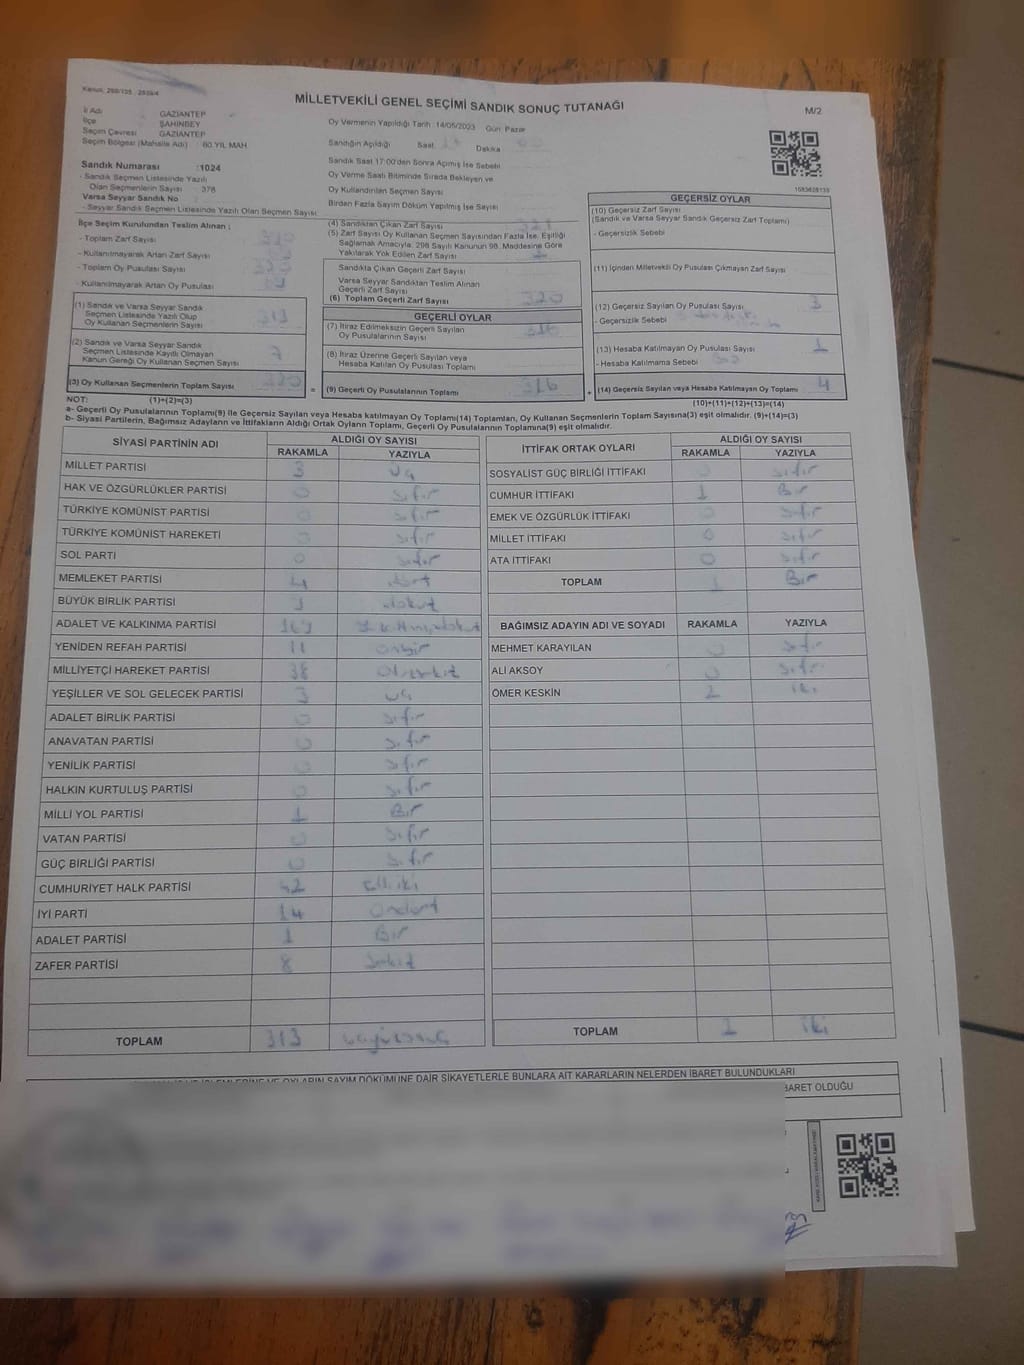 MİLLETVEKİLİ GENEL SEÇİMİ SANDIK SONUÇ TUTANAĞI
M/2
İl Adı GAZİANTEP
İlçe ŞAHİNBEY
Seçim Çevresi GAZİANTEP
Seçim Bölgesi (Mahalle Adı) : 60.YIL MAH.
Oy Vermenin Yapıldığı Tarih :14/05/2023 Gün: Pazar
Sandığın Açıldığı Saat Dakika
Sandık Saat 17:00'den Sonra Açılmış İse Sebebi
Oy Verme Saati Bitiminde Sırada Bekleyen ve
Oy Kullandırılan Seçmen Sayısı
Birden Fazla Sayım Döküm Yapılmış İse Sayısı
Sandık Numarası :1024
- Sandık Seçmen Listesinde Yazılı
Olan Seçmenlerin Sayısı : 378
Varsa Seyyar Sandık No
- Seyyar Sandık Seçmen Listesinde Yazılı Olan Seçmen Sayısı:
İlçe Seçim Kurulundan Teslim Alınan ;
- Toplam Zarf Sayısı
- Kullanılmayarak Artan Zarf Sayısı
- Toplam Oy Pusulası Sayısı
- Kullanılmayarak Artan Oy Pusulası
(1) Sandık ve Varsa Seyyar Sandık
Seçmen Listesinde Yazılı Olup
Oy Kullanan Seçmenlerin Sayısı 313
(2) Sandık ve Varsa Seyyar Sandık
Seçmen Listesinde Kayıtlı Olmayan
Kanun Gereği Oy Kullanan Seçmen Sayısı 7
(3) Oy Kullanan Seçmenlerin Toplam Sayısı 320
(4) Sandıktan Çıkan Zarf Sayısı 321
(5) Zarf Sayısı Oy Kullanan Seçmen Sayısından Fazla İse, Eşitliği
Sağlamak Amacıyla, 298 Sayılı Kanunun 98. Maddesine Göre
Yakılarak Yok Edilen Zarf Sayısı 1
Sandıkta Çıkan Geçerli Zarf Sayısı
Varsa Seyyar Sandıktan Teslim Alınan
Geçerli Zarf Sayısı
(6) Toplam Geçerli Zarf Sayısı 320
GEÇERLİ OYLAR
(7) İtiraz Edilmeksizin Geçerli Sayılan
Oy Pusulalarının Sayısı 316
(8) İtiraz Üzerine Geçerli Sayılan veya
Hesaba Katılan Oy Pusulaları Toplamı
= (9) Geçerli Oy Pusulalarının Toplamı 316
GEÇERSİZ OYLAR
(10) Geçersiz Zarf Sayısı
(Sandık ve Varsa Seyyar Sandık Geçersiz Zarf Toplamı)
- Geçersizlik Sebebi
(11) İçinden Milletvekili Oy Pusulası Çıkmayan Zarf Sayısı
(12) Geçersiz Sayılan Oy Pusulası Sayısı 3
- Geçersizlik Sebebi
(13) Hesaba Katılmayan Oy Pusulası Sayısı 1
- Hesaba Katılmama Sebebi
+ (14) Geçersiz Sayılan veya Hesaba Katılmayan Oy Toplamı 4
NOT: (1)+(2)=(3) (10)+(11)+(12)+(13)=(14)
a- Geçerli Oy Pusulalarının Toplamı(9) ile Geçersiz Sayılan veya Hesaba katılmayan Oy Toplamı(14) Toplamları, Oy Kullanan Seçmenlerin Toplam Sayısına(3) eşit olmalıdır. (9)+(14)=(3)
b- Siyasi Partilerin, Bağımsız Adayların ve İttifakların Aldığı Ortak Oyların Toplamı, Geçerli Oy Pusulalarının Toplamına(9) eşit olmalıdır.
SİYASİ PARTİNİN ADI ALDIĞI OY SAYISI
RAKAMLA YAZIYLA
MİLLET PARTİSİ 3 üç
HAK VE ÖZGÜRLÜKLER PARTİSİ 0 sıfır
TÜRKİYE KOMÜNİST PARTİSİ 0 sıfır
TÜRKİYE KOMÜNİST HAREKETİ 0 sıfır
SOL PARTİ 0 sıfır
MEMLEKET PARTİSİ 4 dört
BÜYÜK BİRLİK PARTİSİ
ADALET VE KALKINMA PARTİSİ
YENİDEN REFAH PARTİSİ 11 onbir
MİLLİYETÇİ HAREKET PARTİSİ 38
YEŞİLLER VE SOL GELECEK PARTİSİ 3 üç
ADALET BİRLİK PARTİSİ 0 sıfır
ANAVATAN PARTİSİ 0 sıfır
YENİLİK PARTİSİ 0 sıfır
HALKIN KURTULUŞ PARTİSİ 0 sıfır
MİLLİ YOL PARTİSİ 1 Bir
VATAN PARTİSİ 0 sıfır
GÜÇ BİRLİĞİ PARTİSİ 0 sıfır
CUMHURİYET HALK PARTİSİ
İYİ PARTİ 14 ondört
ADALET PARTİSİ 1 Bir
ZAFER PARTİSİ 8 sekiz
TOPLAM 313
İTTİFAK ORTAK OYLARI ALDIĞI OY SAYISI
RAKAMLA YAZIYLA
SOSYALİST GÜÇ BİRLİĞİ İTTİFAKI 0 sıfır
CUMHUR İTTİFAKI 1 Bir
EMEK VE ÖZGÜRLÜK İTTİFAKI 0 sıfır
MİLLET İTTİFAKI 0 sıfır
ATA İTTİFAKI 0 sıfır
TOPLAM 1 Bir
BAĞIMSIZ ADAYIN ADI VE SOYADI RAKAMLA YAZIYLA
MEHMET KARAYILAN 0 sıfır
ALİ AKSOY 0 sıfır
ÖMER KESKİN 2 iki
TOPLAM 2 iki
OYLARIN SAYIM DÖKÜMÜNE DAİR ŞİKAYETLERLE BUNLARA AİT KARARLARIN NELERDEN İBARET BULUNDUKLARI
İBARET OLDUĞU